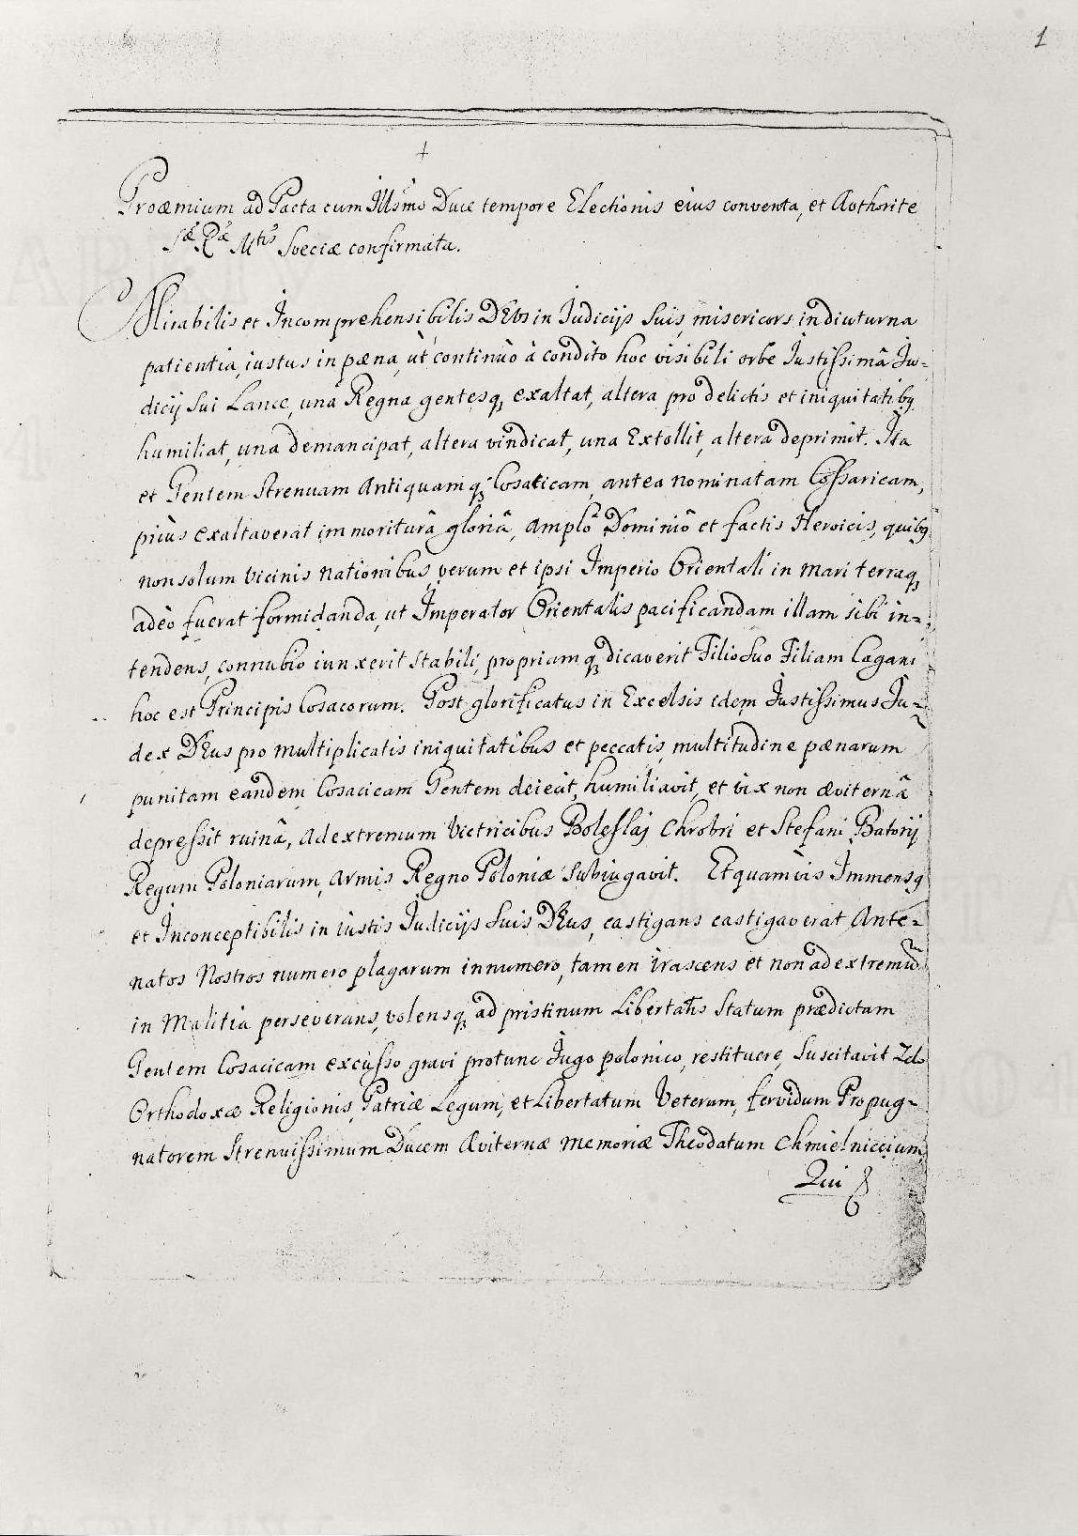 1
Proæmium ad Pacta cum Illsmo Duce tempore Electionis eius conventa, et Authorite
Sæ Ræ Mtis Sveciæ confirmata.
Mirabilis et Incomprehensibilis DEus in Judicijs Suis, misericors in diuturna
patientia, iustus in pæna, ùt continùo à condito hoc visibili orbe Justissimâ Ju-
dicij Sui Lance, unâ Regna gentesq exaltat, altera pro delictis et iniquitatibq
humiliat, una demancipat, altera vindicat, una Extollit, altera deprimit. Ita
et Gentem Strenuam Antiquamq Cosacicam, antea nominatam Cossaricam,
priùs exaltaverat immoriturâ gloriâ, amplô Dominiô et factis Heroicis, quibq
non solum vicinis nationibus, verum et ipsi Imperio Orientali in mari terraq
adèo fuerat formidanda, ut Imperator Orientalis pacificandam illam sibi in-
tendens, connubio iunxerit stabili, propriamq dicaverit Filio Suo Filiam Cagani
hoc est Principis Cosacorum. Post glorificatus in Excelsis idem Justissimus Ju-
dex DEus pro multiplicatis iniquitatibus et peccatis, multitudine pænarum
punitam eandem Cosacicam Gentem deiecit, humiliavit, et vix non æviternâ
depressit ruinâ, ad extremum Victricibus Boleslaj Chrobri et Stefani Batorij
Regum Poloniarum, armis Regno Poloniæ Subiugavit. Et quamvìs Immensq
et Inconceptibilis in iustis Judicijs Suis DEus, castigans castigaverat Ante-
natos Nostros numero plagarum innumero, tamen irascens et non ad extremũ
in Malitia perseverans, volensq ad pristinum Libertatis Statum prædictam
Gentem Cosacicam excusso gravi protunc Jugo polonico, restituere, Suscitavit Zelo
Orthodoxæ Religionis, Patriæ Legum, et Libertatum Veterum, fervidum Propug-
natorem Strenuissimum Ducem Æviternæ memoriæ Theodatum Chmielniccium,
Qui